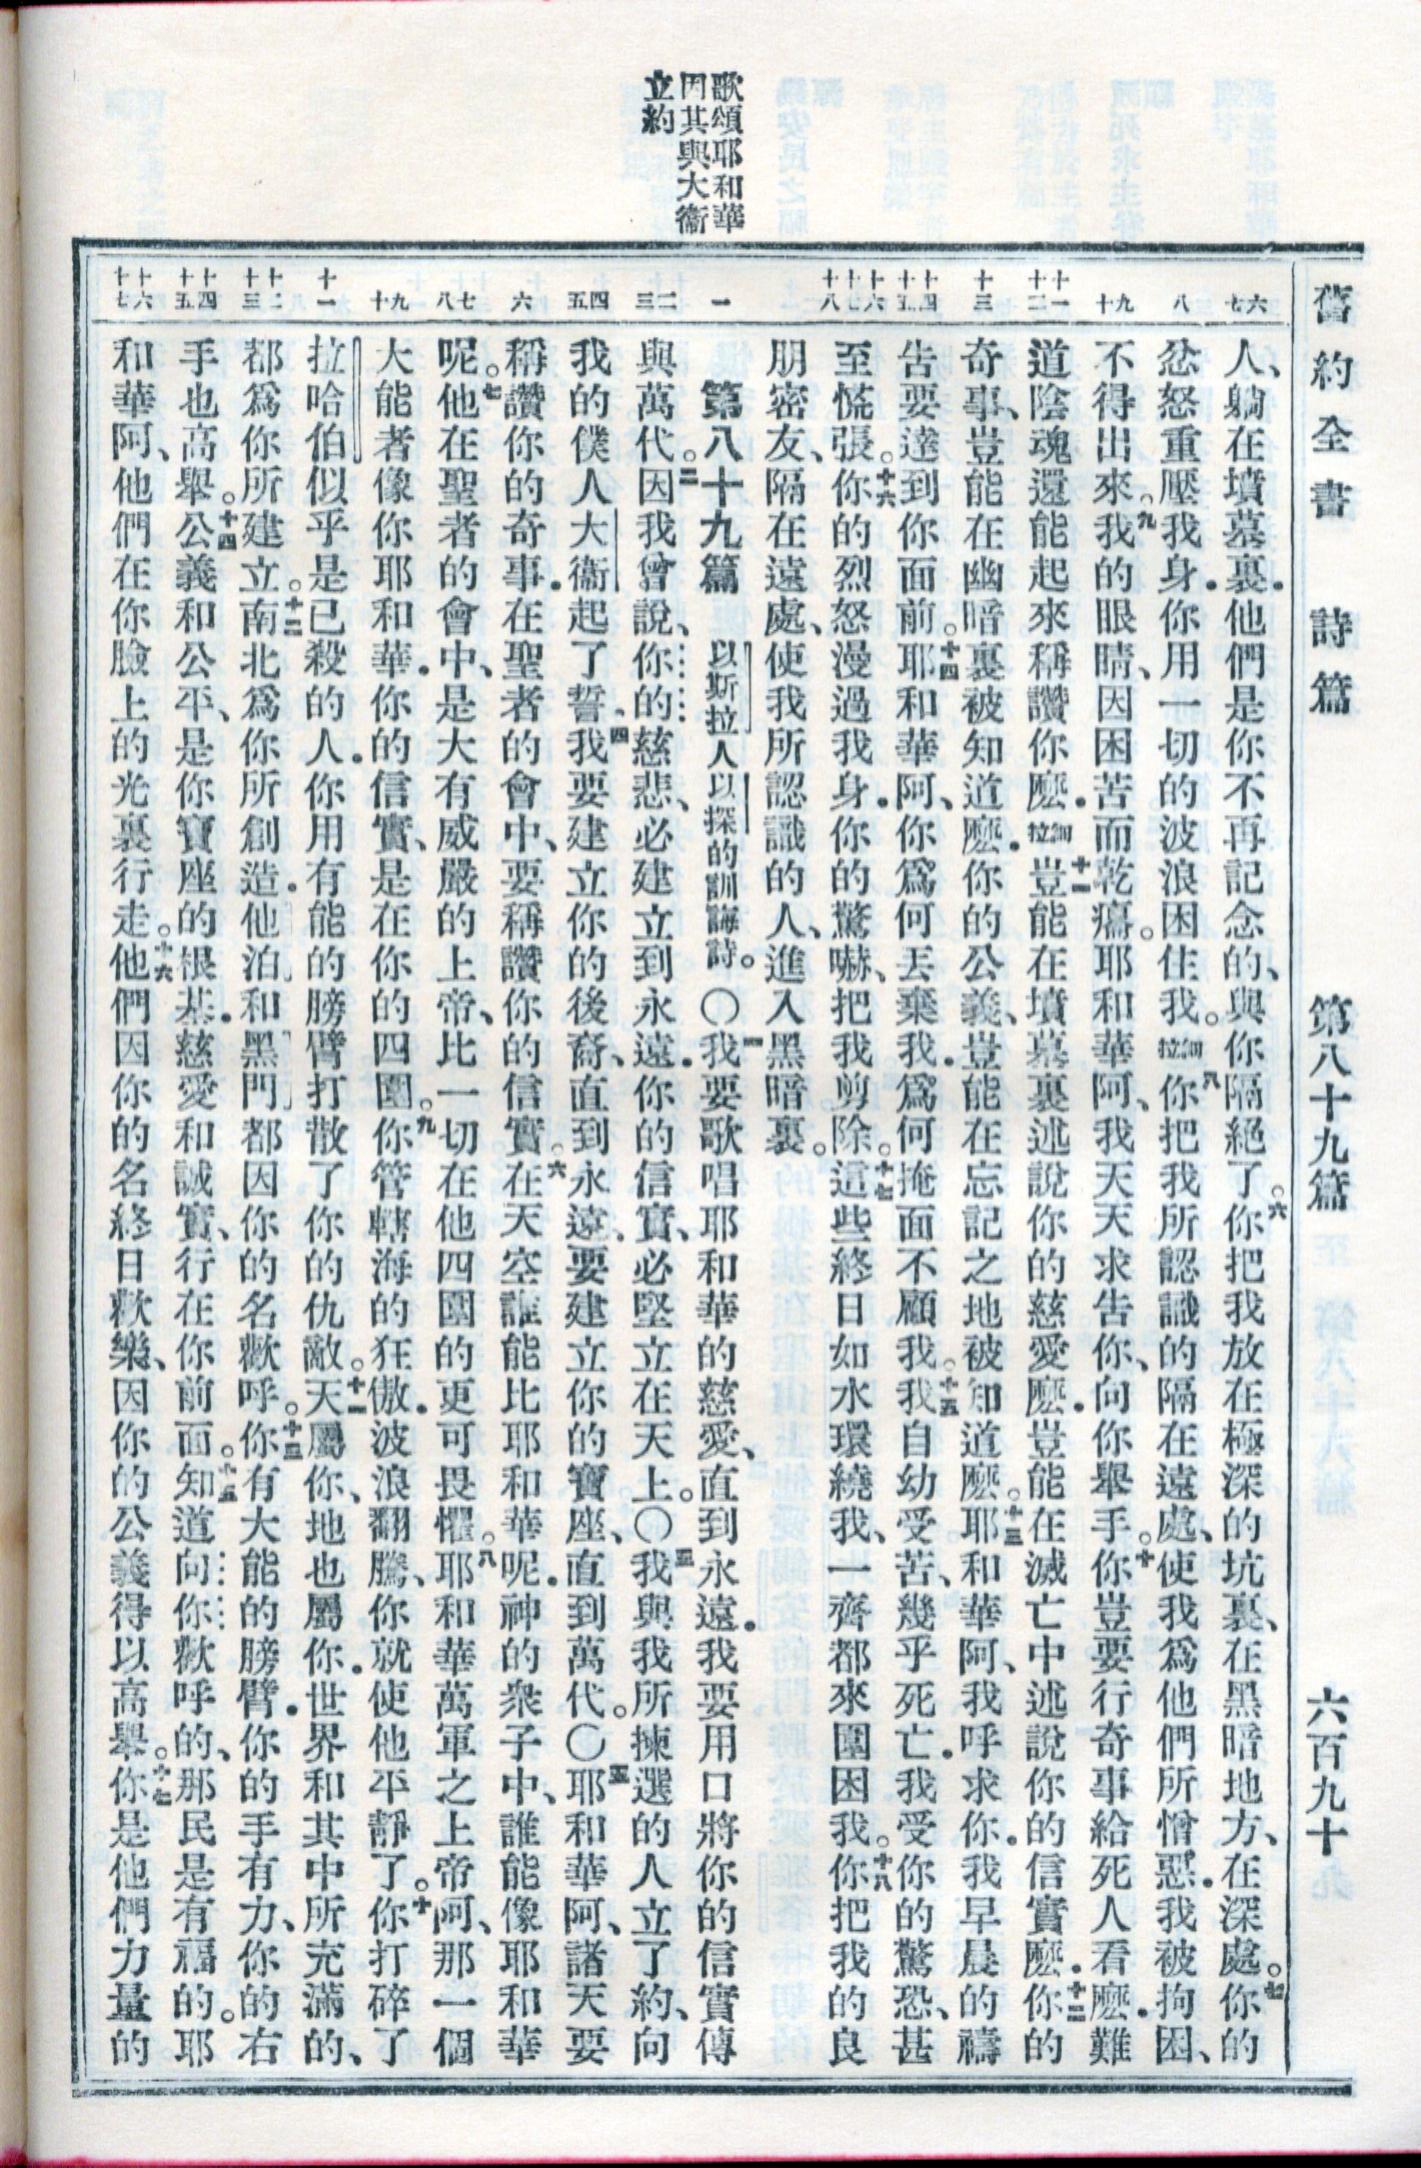 舊約全書　詩篇　第八十九篇　六百九十
歌頌耶和華
因其與大衞
立約
六 七
八
九 十
十一 十二
十三
十四 十五
十六 十七 十八
一
二 三
四 五
六
七 八
九 十
十一
十二 十三
十四 十五
十六 十七
人、躺在墳墓裏．他們是你不再記念的、與你隔絕了。六你把我放在極深的坑裏、在黑暗地方、在深處。七你的
忿怒重壓我身．你用一切的波浪困住我。細拉八你把我所認識的隔在遠處、使我爲他們所憎惡．我被拘困、
不得出來。九我的眼睛、因困苦而乾癟。耶和華阿、我天天求告你、向你舉手。十你豈要行奇事給死人看麼．難
道陰魂還能起來稱讚你麼．細拉十一豈能在墳墓裏述說你的慈愛麼．豈能在滅亡中述說你的信實麼．十二你的
奇事、豈能在幽暗裏被知道麼．你的公義、豈能在忘記之地被知道麼。十三耶和華阿、我呼求你．我早晨的禱
告要達到你面前。十四耶和華阿、你爲何丟棄我．爲何掩面不顧我。十五我自幼受苦、幾乎死亡．我受你的驚恐、甚
至慌張。十六你的烈怒漫過我身．你的驚嚇、把我剪除。十七這些終日如水環繞我、一齊都來圍困我。十八你把我的良
朋密友、隔在遠處、使我所認識的人、進入黑暗裏。
第八十九篇　以斯拉人以探的訓誨詩。〇一我要歌唱耶和華的慈愛、直到永遠．我要用口將你的信實傳
與萬代。二因我曾說、你的慈悲、必建立到永遠．你的信實、必堅立在天上。〇三我與我所揀選的人立了約、向
我的僕人大衞起了誓．四我要建立你的後裔、直到永遠、要建立你的寶座、直到萬代。〇五耶和華阿、諸天要
稱讚你的奇事．在聖者的會中、要稱讚你的信實。六在天空誰能比耶和華呢．神的衆子中、誰能像耶和華
呢。七他在聖者的會中、是大有威嚴的上帝、比一切在他四圍的更可畏懼。八耶和華萬軍之上帝阿、那一個
大能者像你耶和華．你的信實、是在你的四圍。九你管轄海的狂傲．波浪翻騰、你就使他平靜了。十你打碎了
拉哈伯似乎是已殺的人．你用有能的膀臂打散了你的仇敵。十一天屬你、地也屬你．世界和其中所充滿的、
都爲你所建立。十二南北爲你所創造．他泊和黑門都因你的名歡呼。十三你有大能的膀臂．你的手有力、你的右
手也高舉。十四公義和公平、是你寶座的根基．慈愛和誠實、行在你前面。十五知道向你歡呼的、那民是有福的。耶
和華阿、他們在你臉上的光裏行走。十六他們因你的名終日歡樂、因你的公義得以高舉。十七你是他們力量的